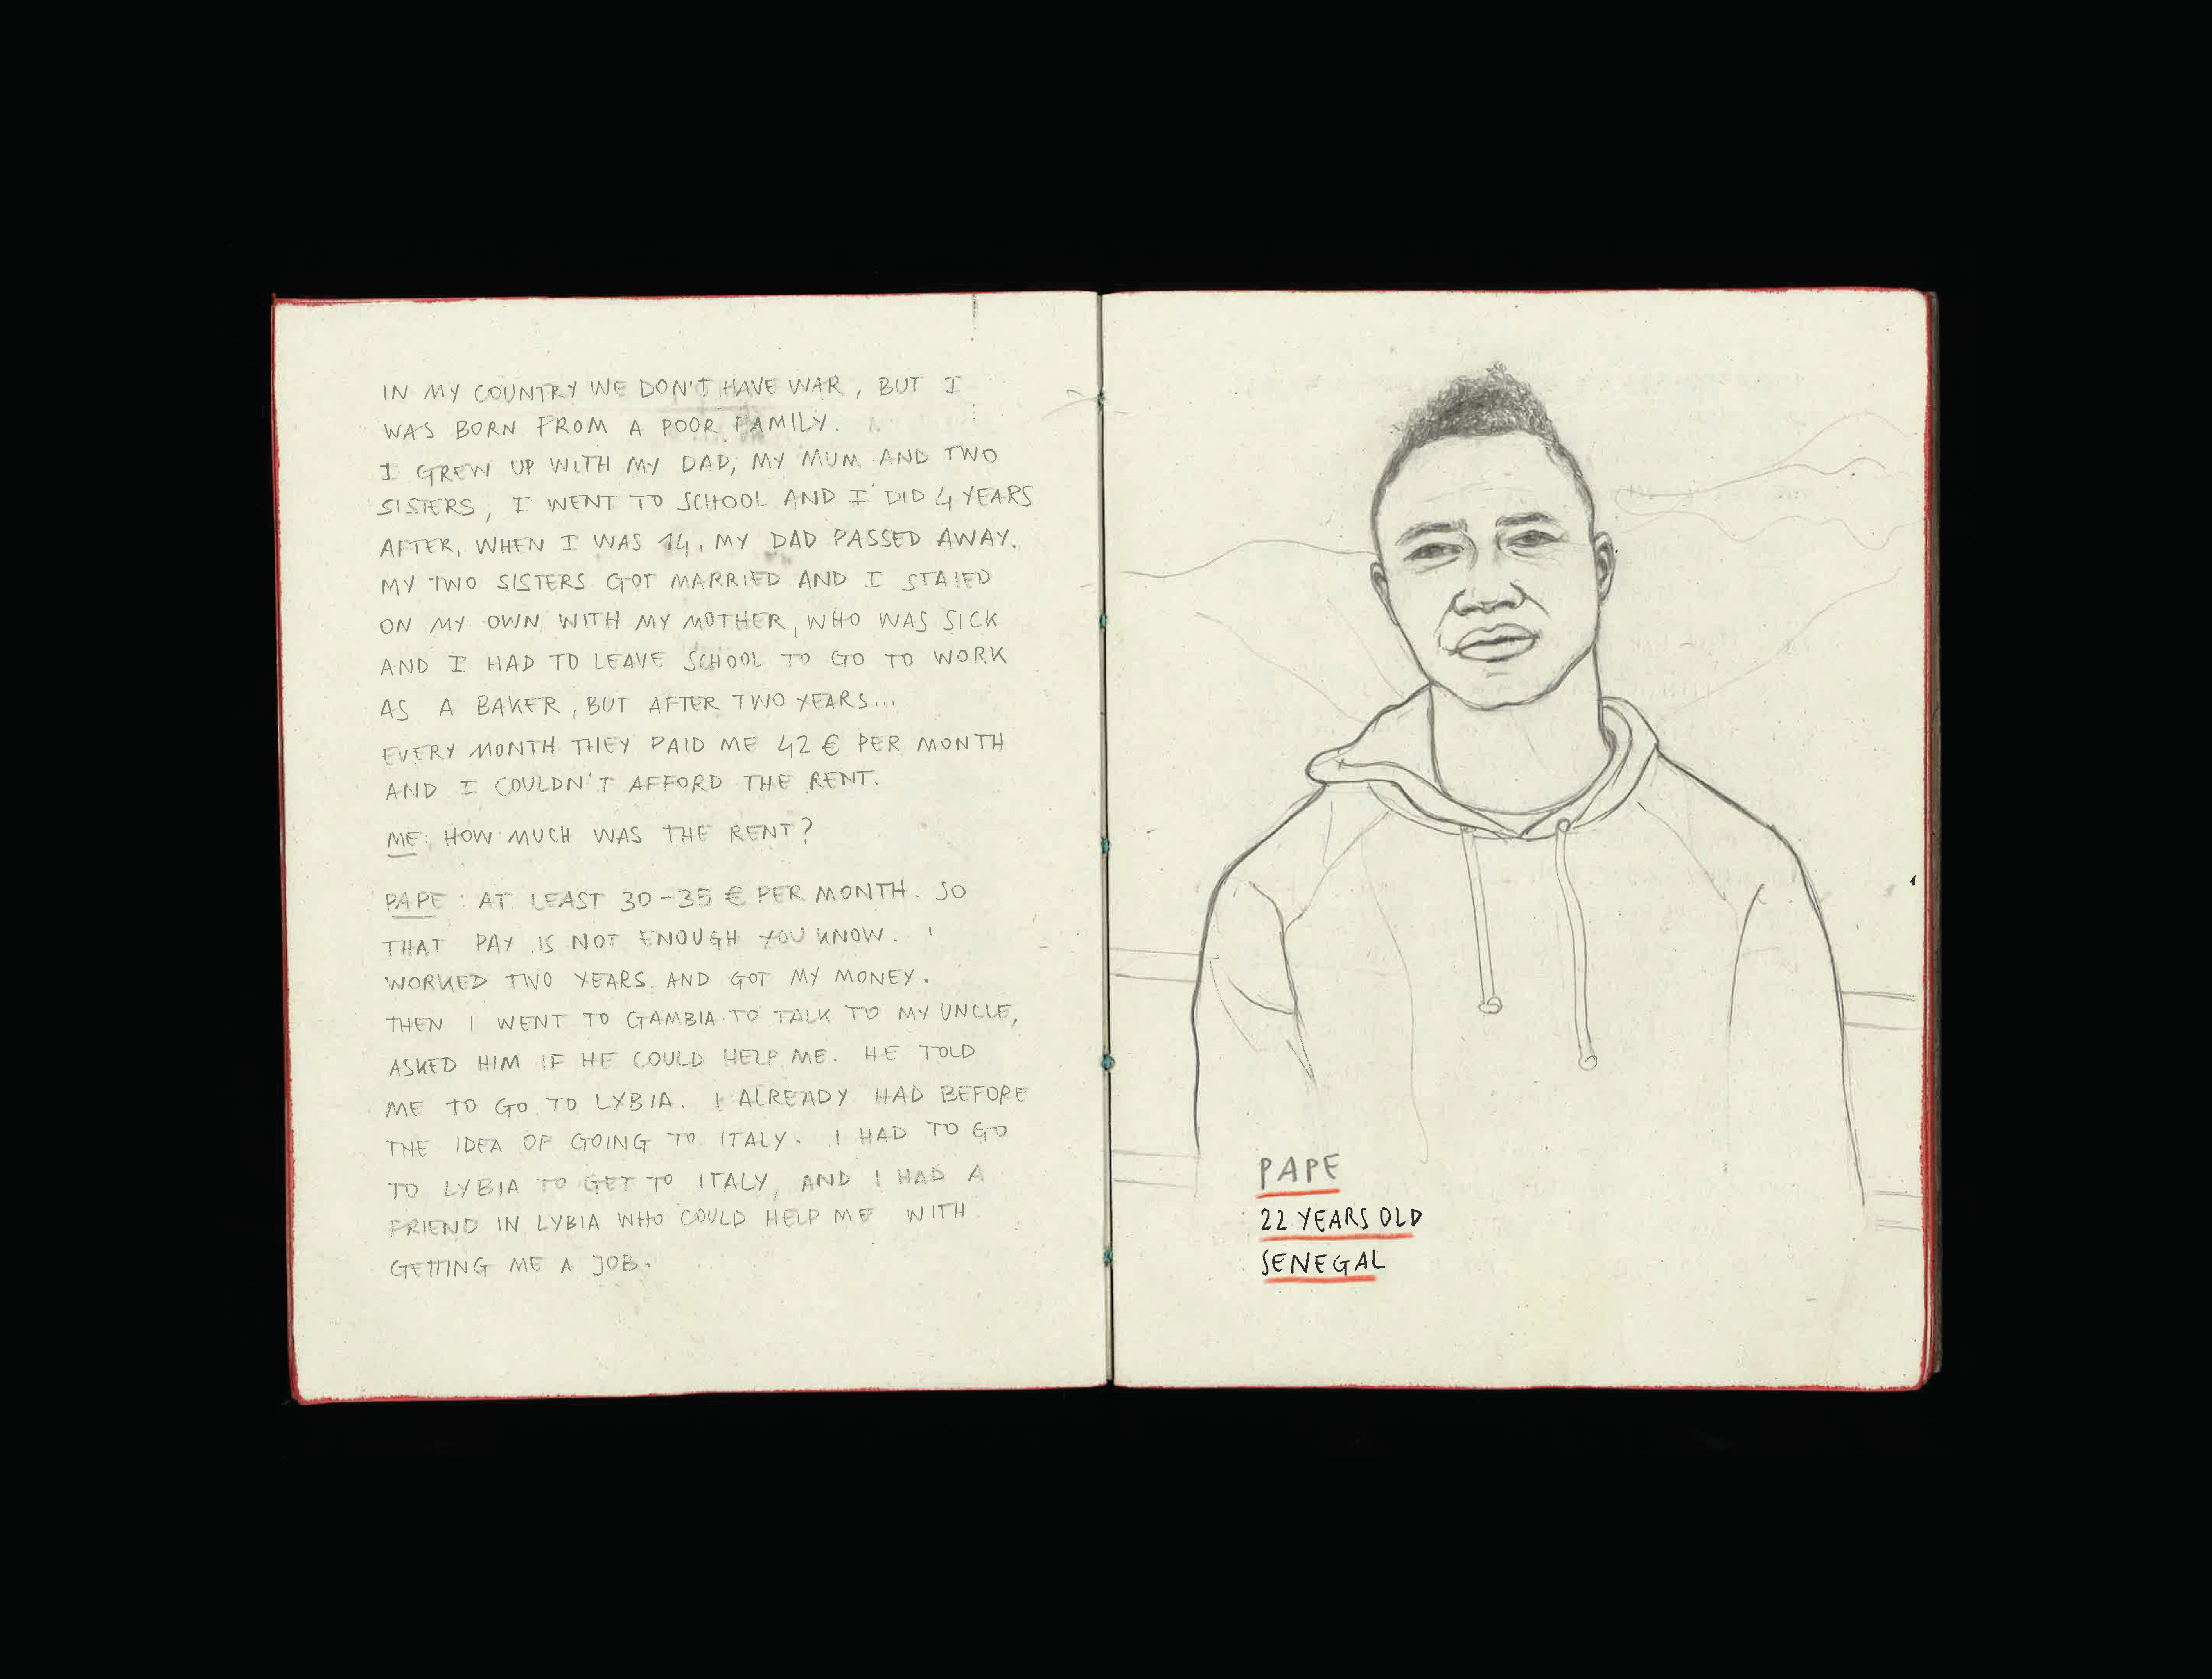 IN MY COUNTRY WE DON'T HAVE WAR, BUT I
WAS BORN FROM A POOR FAMILY.
I GREW UP WITH MY DAD, MY MUM AND TWO
SISTERS, I WENT TO SCHOOL AND I DID 4 YEARS
AFTER, WHEN I WAS 14, MY DAD PASSED AWAY.
MY TWO SISTERS GOT MARRIED AND I STAIED
ON MY OWN WITH MY MOTHER, WHO WAS SICK
AND I HAD TO LEAVE SCHOOL TO GO TO WORK
AS A BAKER, BUT AFTER TWO YEARS...
EVERY MONTH THEY PAID ME 42 € PER MONTH
AND I COULDN'T AFFORD THE RENT.
ME: HOW MUCH WAS THE RENT?
PAPE: AT LEAST 30-35 € PER MONTH. SO
THAT PAY IS NOT ENOUGH YOU KNOW. I
WORKED TWO YEARS AND GOT MY MONEY.
THEN I WENT TO GAMBIA TO TALK TO MY UNCLE,
ASKED HIM IF HE COULD HELP ME. HE TOLD
ME TO GO TO LYBIA. I ALREADY HAD BEFORE
THE IDEA OF GOING TO ITALY. I HAD TO GO
TO LYBIA TO GET TO ITALY, AND I HAD A
FRIEND IN LYBIA WHO COULD HELP ME WITH
GETTING ME A JOB.
PAPE
22 YEARS OLD
SENEGAL